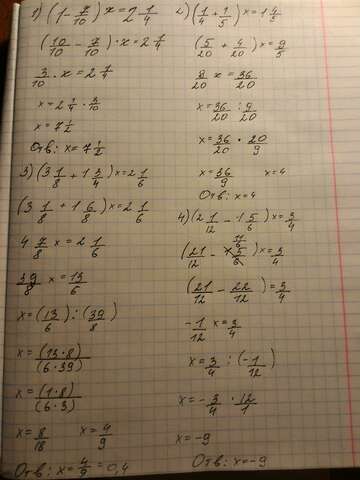 1) (1 - 7/10) x = 2 1/4
(10/10 - 7/10) · x = 2 1/4
3/10 · x = 2 1/4
x = 2 1/4 · 3/10
x = 7 1/2
Отв: x = 7 1/2
2) (1/4 + 1/5) x = 1 4/5
(5/20 + 4/20) x = 9/5
9/20 x = 36/20
x = 36/20 : 9/20
x = 36/20 · 20/9
x = 36/9 x = 4
Отв: x = 4
3) (3 1/8 + 1 3/4) x = 2 1/6
(3 1/8 + 1 6/8) x = 2 1/6
4 7/8 x = 2 1/6
39/8 x = 13/6
x = (13/6) : (39/8)
x = (13·8)/(6·39)
x = (1·8)/(6·3)
x = 8/18 x = 4/9
Отв: x = 4/9 = 0,4
4) (2 1/12 - 1 5/6) x = 3/4
(21/12 - 11/6) x = 3/4
(21/12 - 22/12) = 3/4
-1/12 x = 3/4
x = 3/4 : (-1/12)
x = -3/4 · 12/1
x = -9
Отв: x = -9